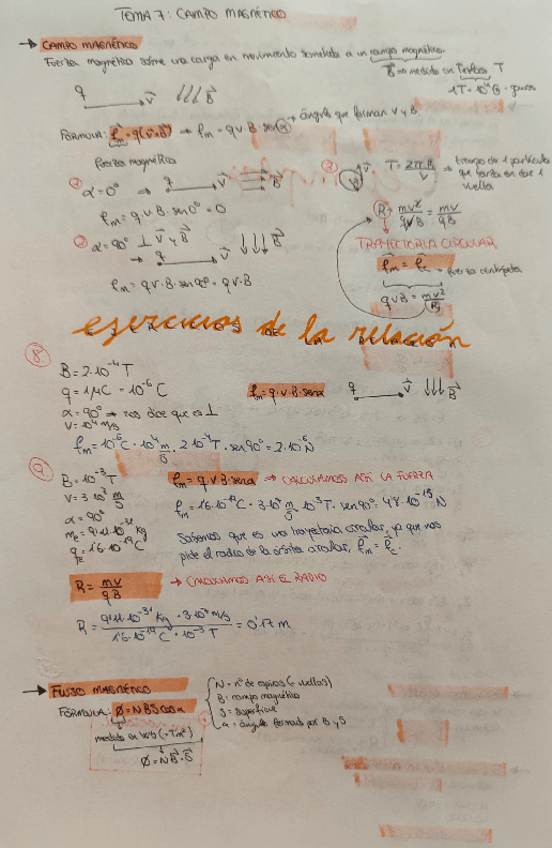 TEMA 7: CAMPO MAGNÉTICO
→ CAMPO MAGNÉTICO
Fuerza magnética sobre una carga en movimiento sometida a un campo magnético.
B⃗ → medido en Teslas T
1T = 10⁴ G · gauss
q v⃗ B⃗
FÓRMULA: f⃗m = q(v⃗×B⃗) → fm = q·v·B·sen α → ángulo que forman v y B.
fuerza magnética
① α = 0° → q v⃗ B⃗
fm = q·v·B·sen0° = 0
② α = 90° ⊥ v⃗ y B⃗
→ q v⃗ B⃗
fm = q·v·B·sen90° = q·v·B
③ v⃗ T = 2πR/v → tiempo de 1 partícula que tarda en dar 1 vuelta
R = mv²/qvB = mv/qB
TRAYECTORIA CIRCULAR
f⃗m = f⃗c → fuerza centrípeta
qvB = mv²/R
ejercicios de la relación
⑧
B = 2·10⁻⁴ T
q = 1μC = 10⁻⁶ C
α = 90° → nos dice que es ⊥
v = 10⁴ m/s
fm = q·v·B·senα q v⃗ B⃗
fm = 10⁻⁶ C · 10⁴ m/s · 2·10⁻⁴ T · sen90° = 2·10⁻⁶ N
⑨
B = 10⁻³ T
v = 3·10⁷ m/s
α = 90°
me = 9'11·10⁻³¹ kg
qe = 1'6·10⁻¹⁹ C
fm = q·v·B·senα → CALCULAMOS ASÍ LA FUERZA
fm = 1'6·10⁻¹⁹ C · 3·10⁷ m/s · 10⁻³ T · sen90° = 4'8·10⁻¹⁵ N
Sabemos que es una trayectoria circular, ya que nos
pide el radio de la órbita circular, f⃗m = f⃗c.
R = mv/qB → CALCULAMOS ASÍ EL RADIO
R = 9'11·10⁻³¹ kg · 3·10⁷ m/s / 1'6·10⁻¹⁹ C · 10⁻³ T = 0'17 m
→ FLUJO MAGNÉTICO
FÓRMULA: Ø = NBS cosα
N = nº de espiras (= vueltas)
B = campo magnético
S = superficie
α = ángulo formado por B y S
medido en Wb (= Tm²)
Ø = NB⃗·S⃗